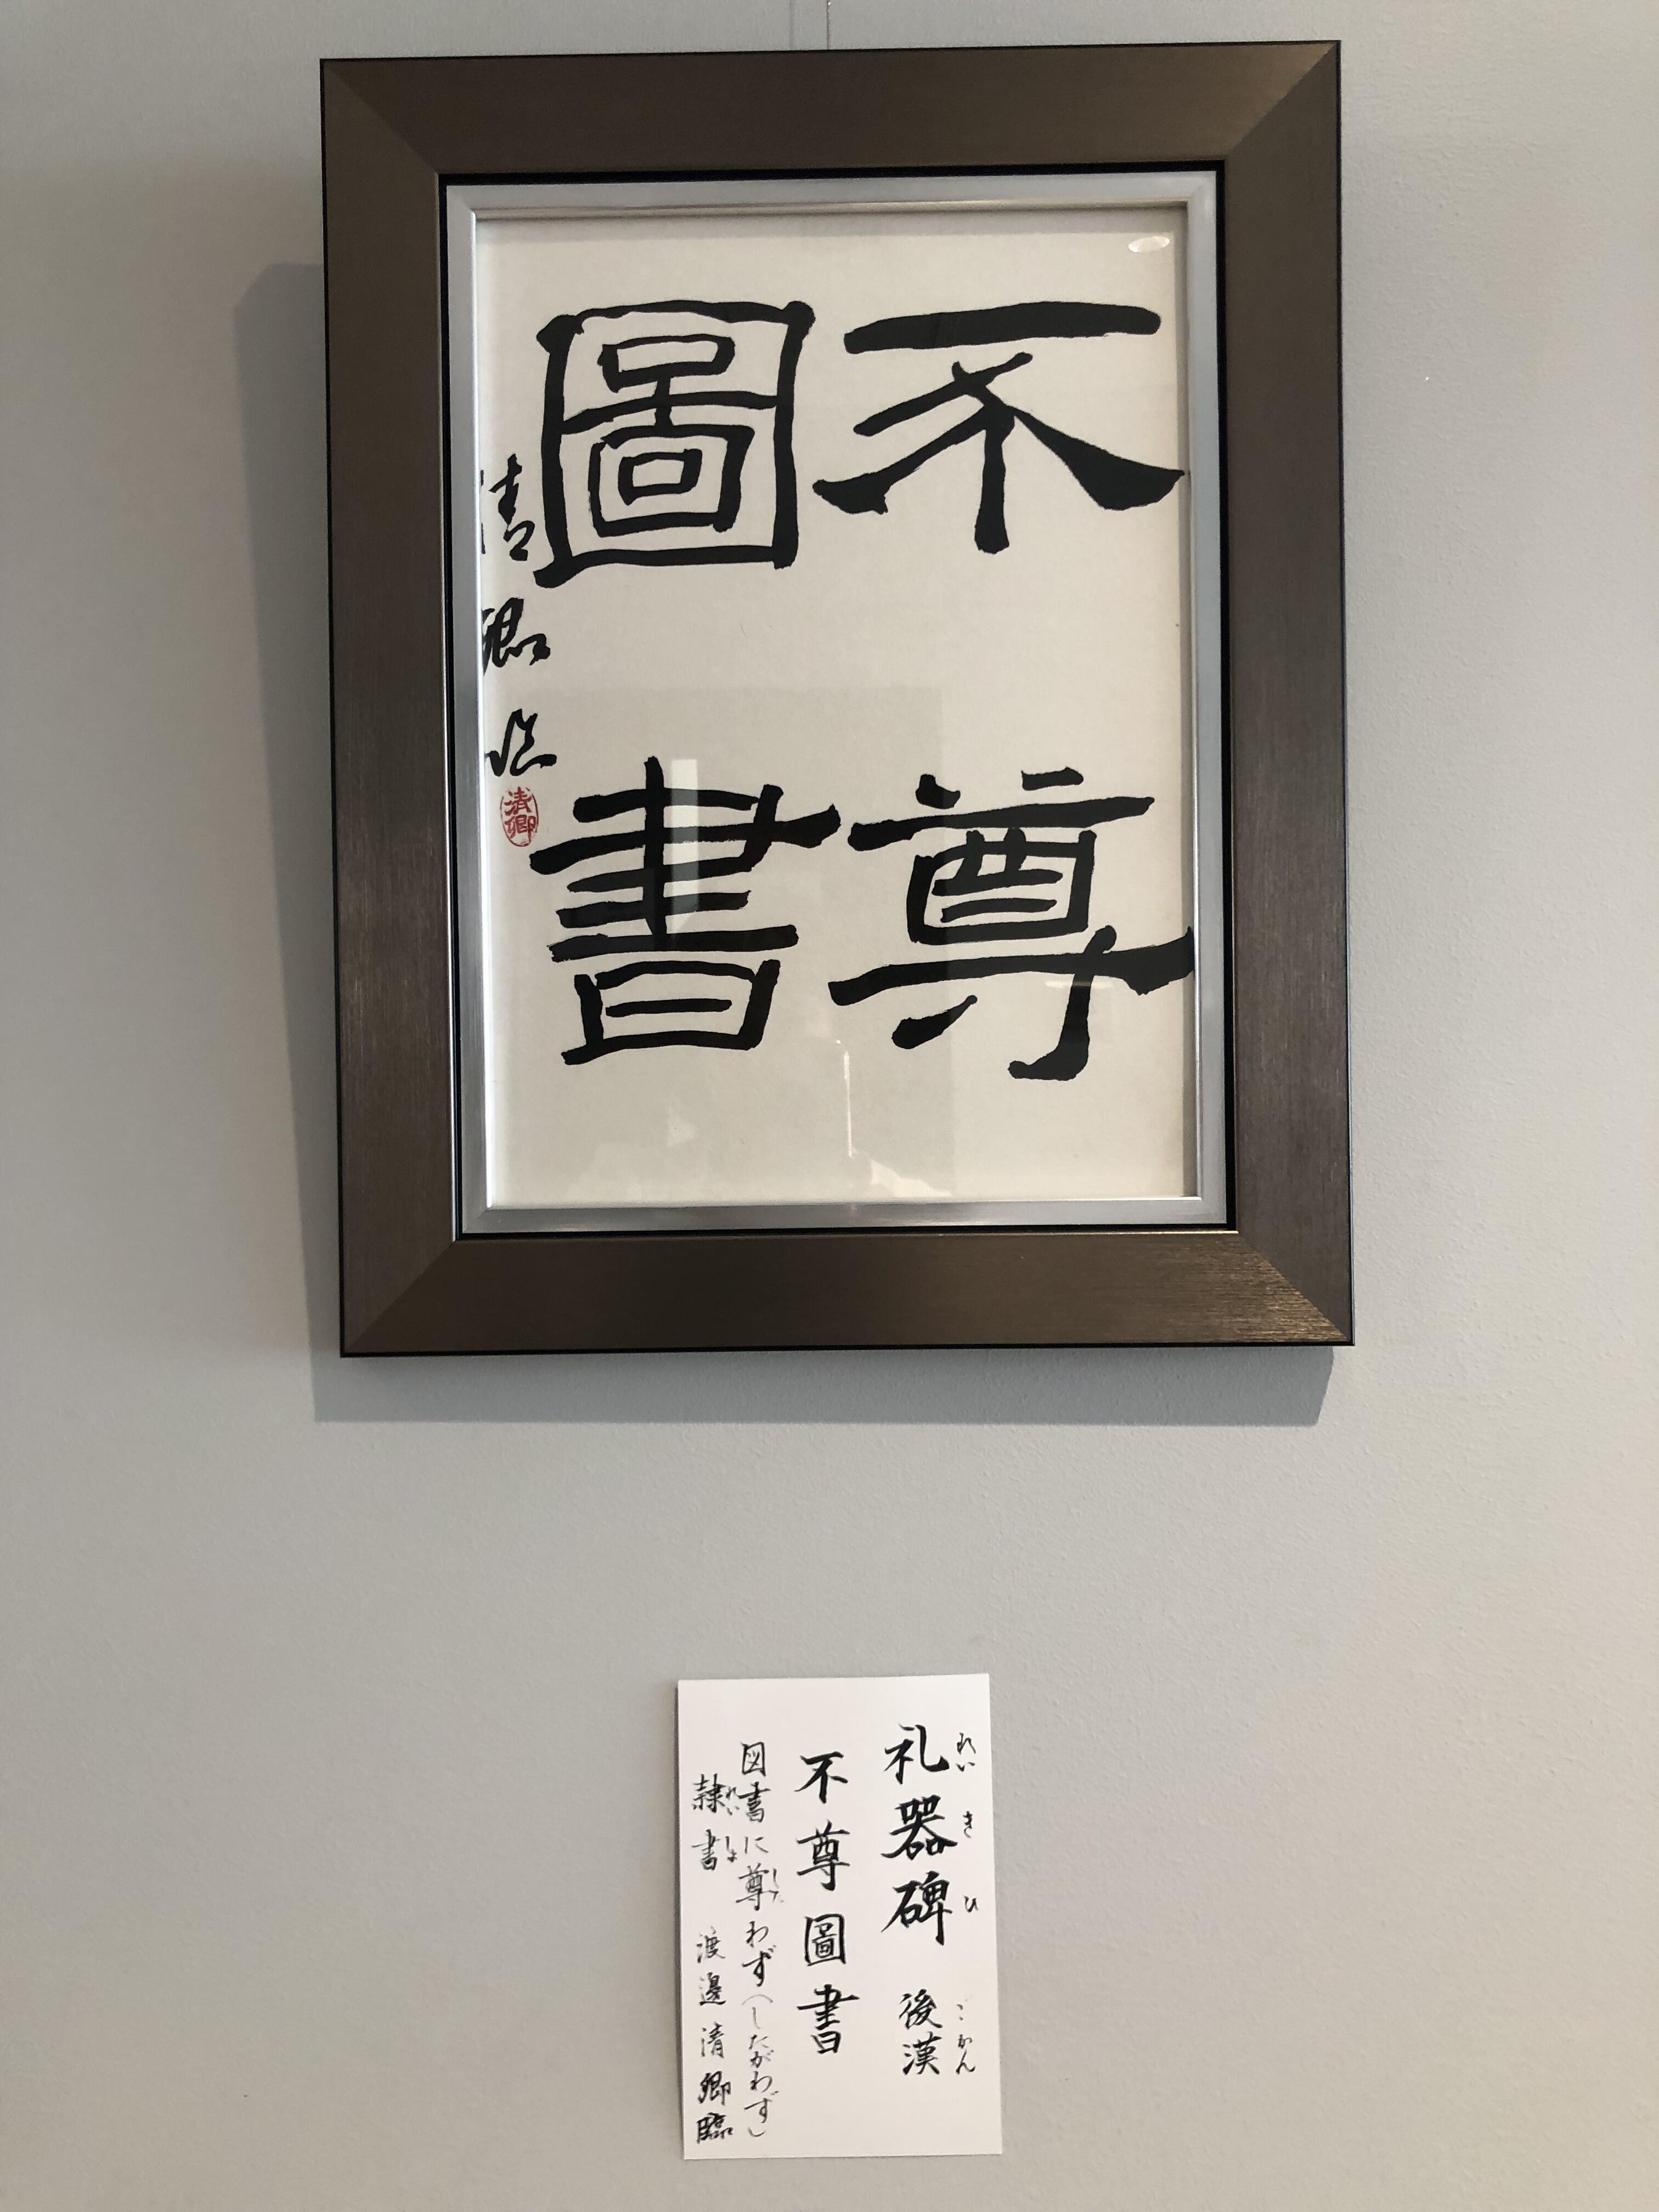 不尊
圖書
清卿臨
清卿
礼器碑 後漢
れいきひ ごかん
不尊圖書
図書に尊わず(したがわず)
した
隷書 渡邊清卿臨
れいしょ